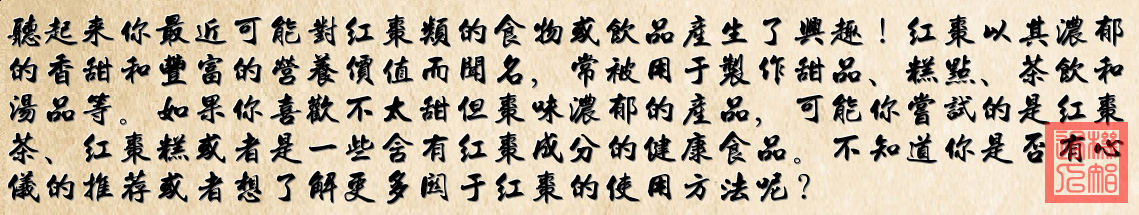 聽起来你最近可能對紅棗類的食物或飲品産生了興趣！紅棗以其濃郁
的香甜和豐富的營養價值而聞名，常被用于製作甜品、糕點、茶飲和
湯品等。如果你喜歡不太甜但棗味濃郁的産品，可能你嘗試的是紅棗
茶、紅棗糕或者是一些含有紅棗成分的健康食品。不知道你是否有心
儀的推荐或者想了解更多関于紅棗的使用方法呢？